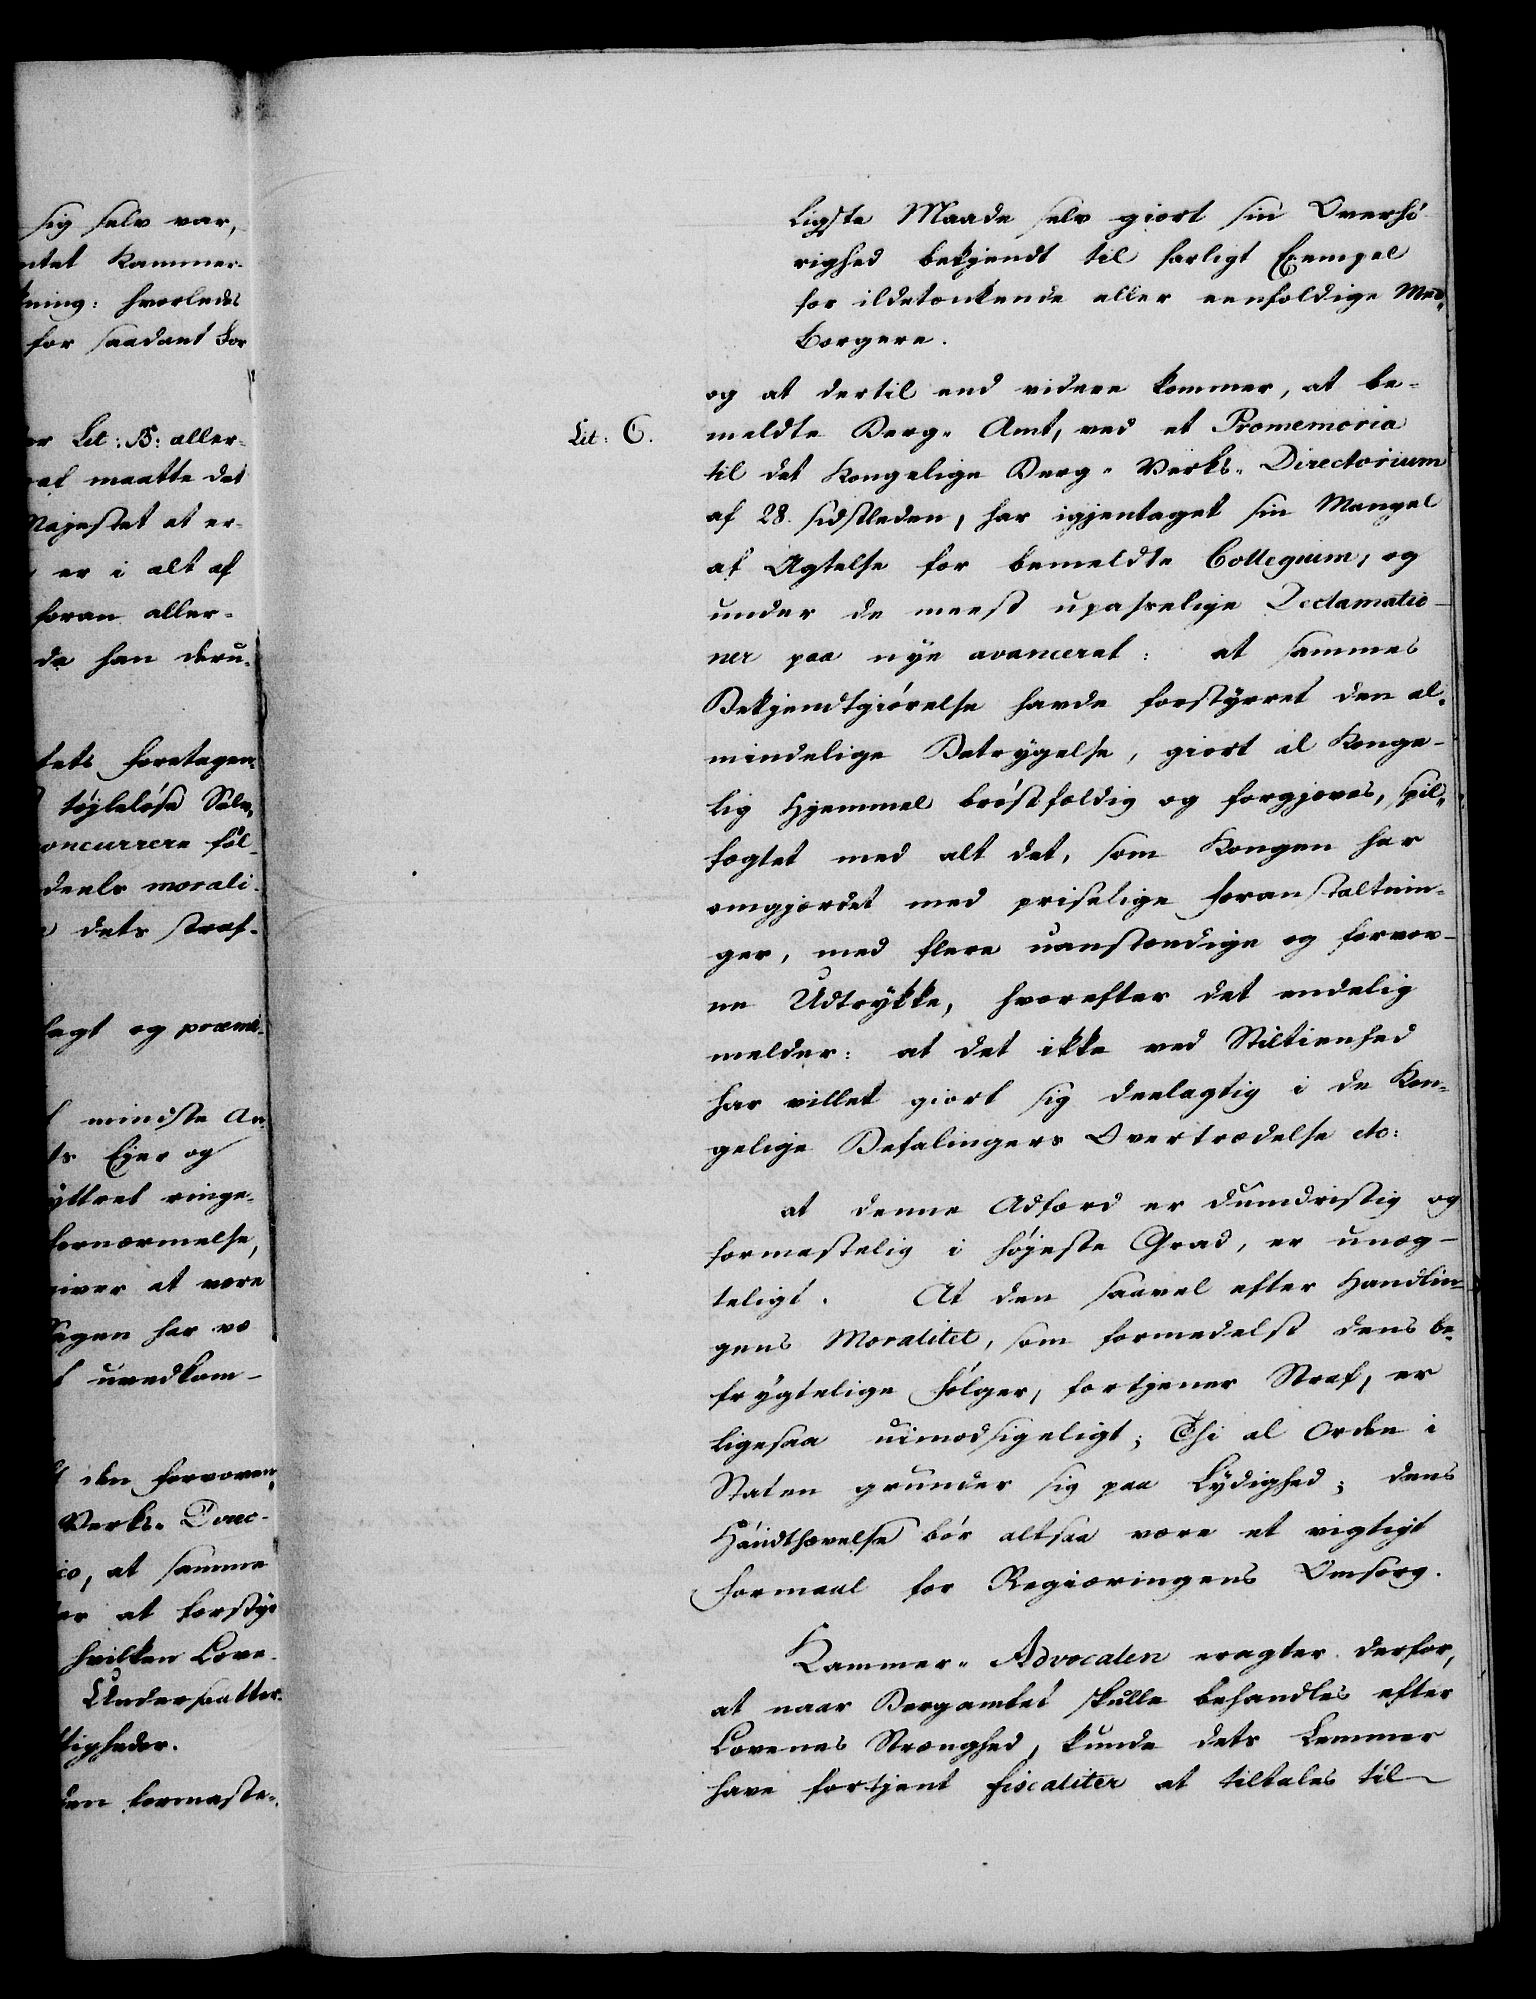 sig selv var,
ntet Kammer-
kning: hvorledes
for saadant For
er Lit: B: aller-
af maatte det
Majestet at er-
er i alt af
foran aller-
da han deru-
tets foretagen
tøjleløse Selv-
oncurrere føl-
deels morali-
dets straf-
sagt og præmi-
mindste An
ts Ejer og
yttret ringe-
fornærmelse,
giver at være
Sagen har væ
uvedkom-
den forvoven
Verks- Direc-
io, at samme
er at forstyr
hvilken Love
Undersaatter
tigheder.
den formaste-
ligste Maade selv giort sin Overhø-
righed bekjendt til farligt Exempel
for ildetænkende eller eenfoldige Med-
borgere.
og at dertil end videre kommer, at be-
Lit: C. meldte Berg- Amt, ved et Promemoria
til det Kongelige Berg- Verks- Directorium
af 28. sidstleden, har igjentaget sin Mangel
af Agtelse for bemeldte Collegium, og
under de meest upasselige Declamatio-
ner paa nye avanceret: at sammes
Bekjendtgiørelse havde forstyrret den al-
mindelige Betrygelse, giort al Konge-
lig Hjemmel brøstfældig og forgjæves, spil-
fægtet med alt det, som Kongen har
omgjordet med priselige foranstaltnin-
ger, med flere uanstændige og forvov-
ne Udtrykke, hvorefter det endelig
melder: at det ikke ved Stiltienhed
har villet giort sig deelagtig i de Kon-
gelige Befalingers Overtrædelse etc:
at denne Adfærd er dumdristig og
formastelig i højeste Grad, er unæg-
teligt. At den saavel efter Handlin-
gens Moralitet, som formedelst dens be-
frygtelige følger, fortjener Straf, er
ligesaa uimodsigeligt; Thi al Orden i
Staten grunder sig paa Lydighed; dens
Haandthævelse bør altsaa være et vigtigt
formaal for Regieringens Omsorg.
Kammer- Advocaten eragter derfor,
at naar Bergamtet skulle behandles efter
Lovenes Strænghed, kunde dets Lemmer
have fortjent fiscaliter at tiltales til